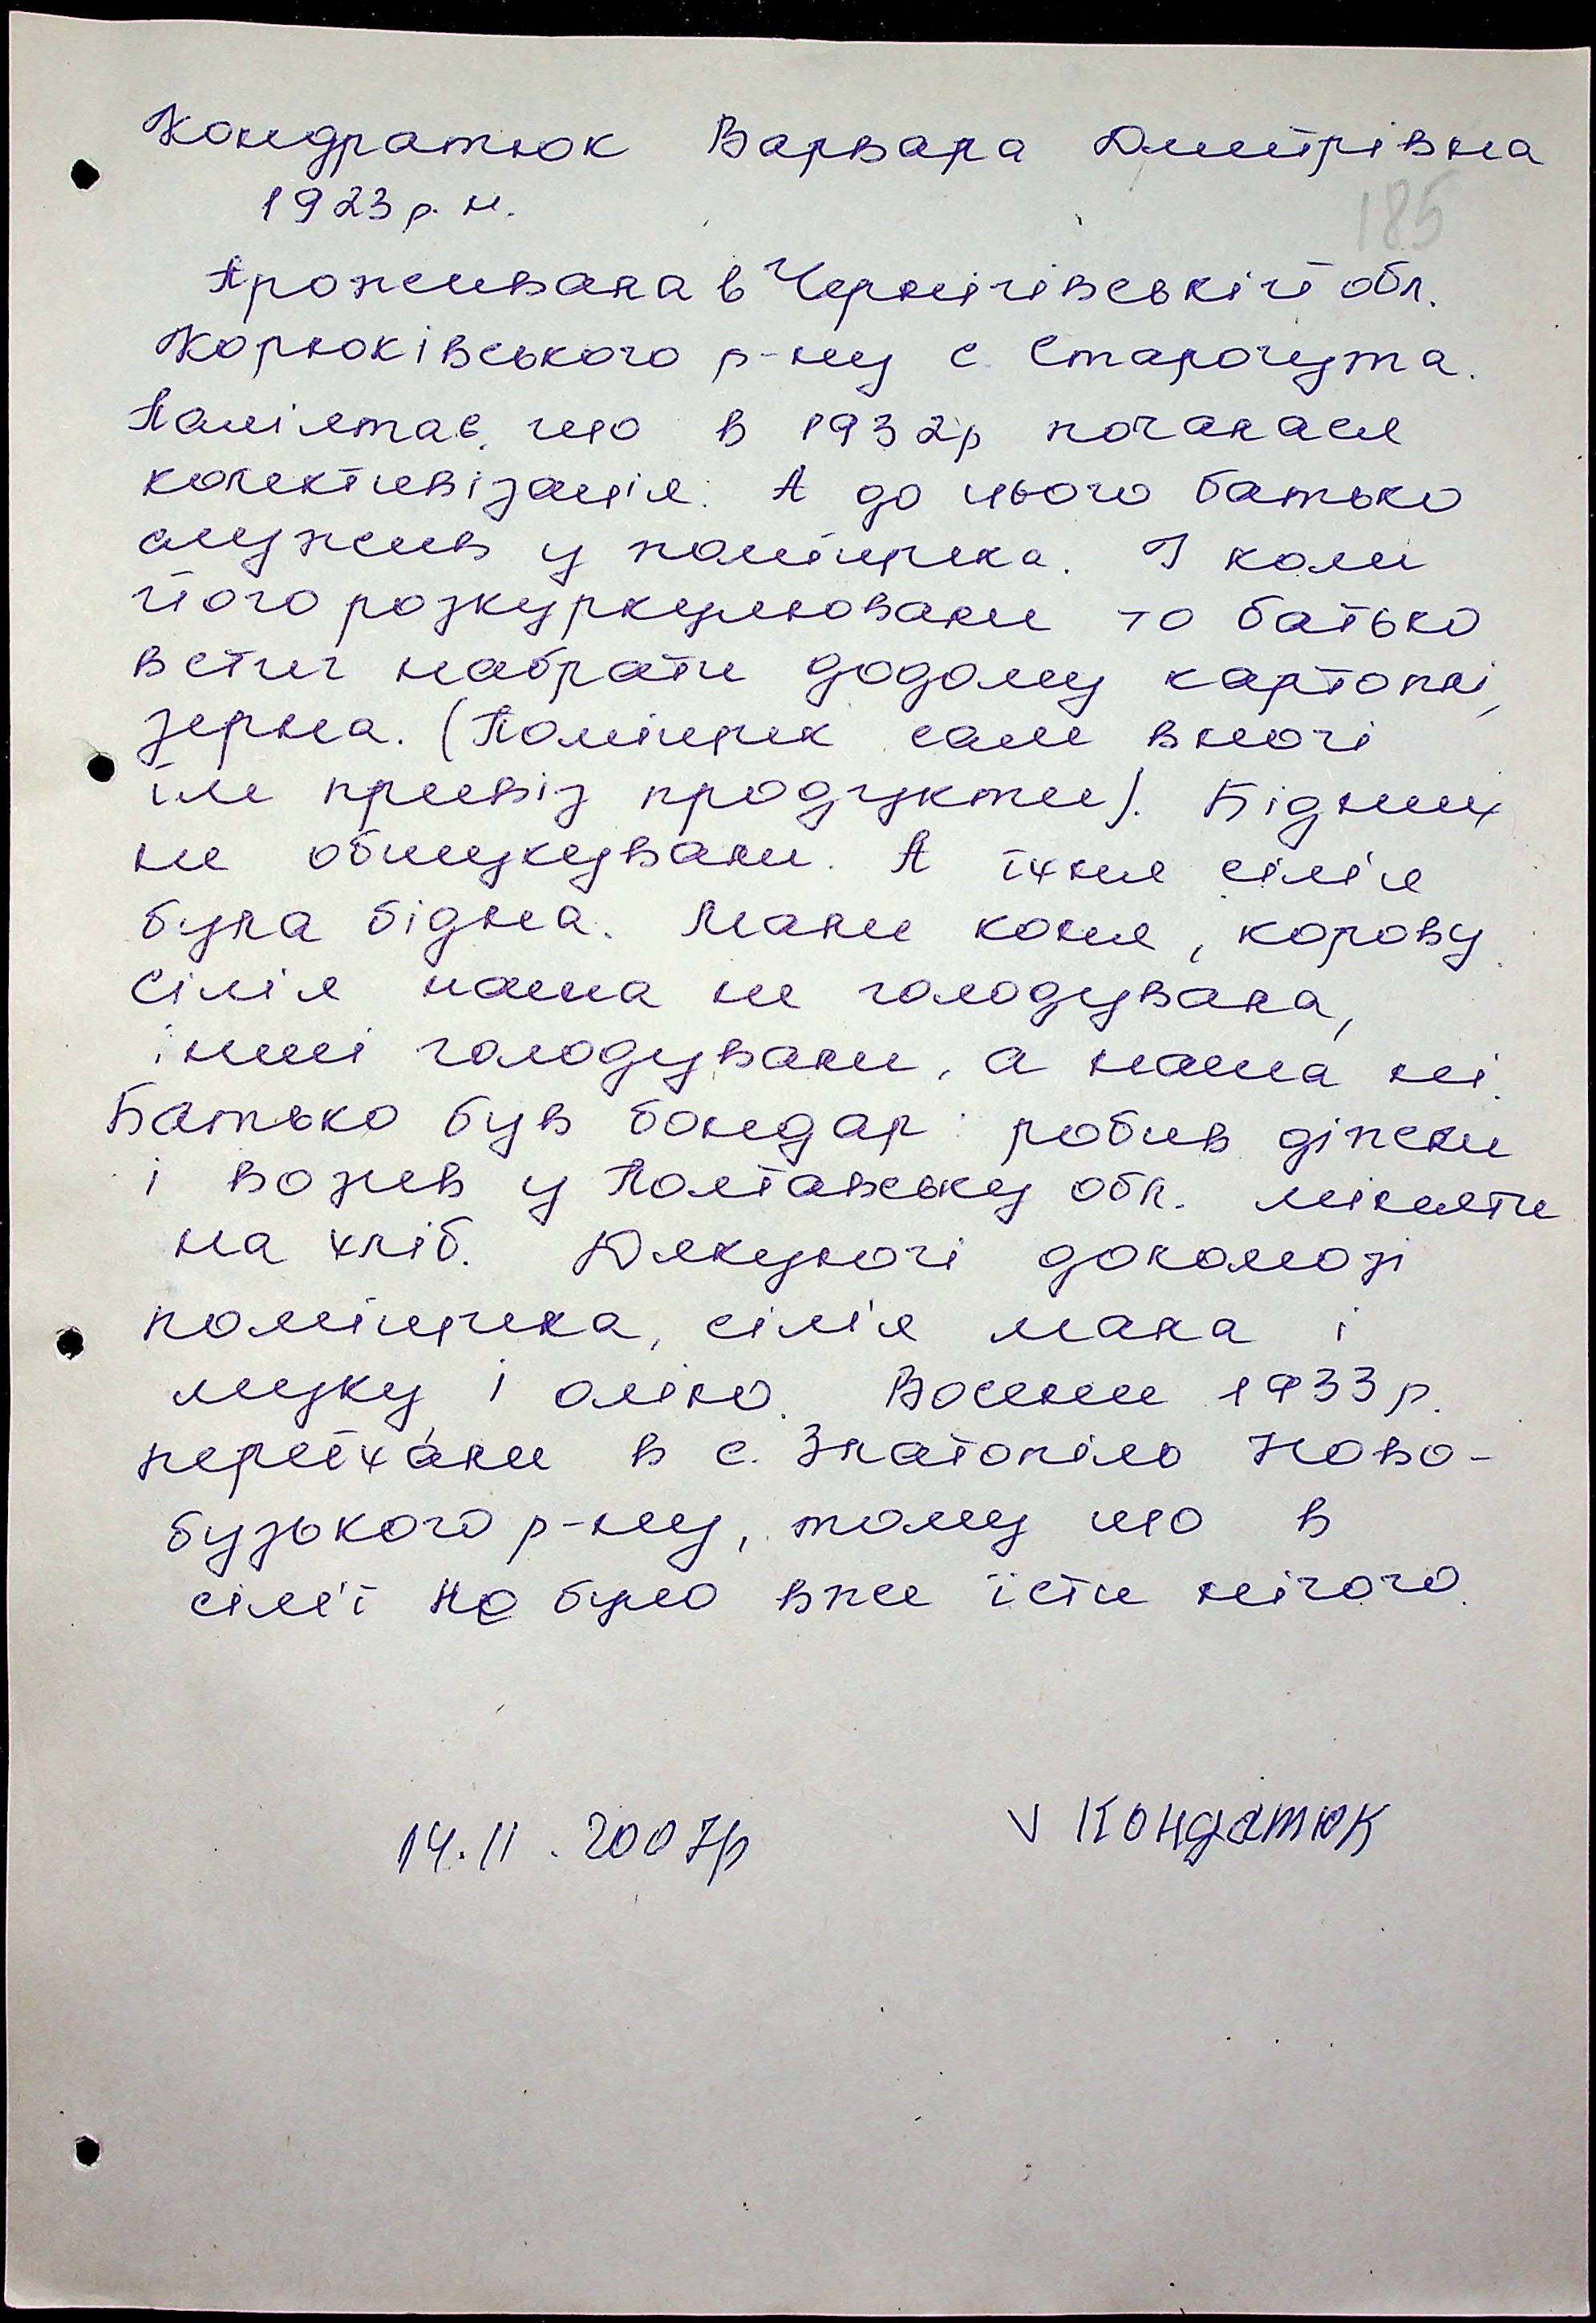 Кондратюк Варвара Дмитрівна
1923 р. н.
185
Проживала в Чернігівській обл.
Корюківського р-ну с. Старогута.
Памілтає, що в 1932р почалася
колективізація. А до цього батько
служив у поміщика. І коли
його розкуркулювали то батько
встиг набрати додому картоплі,
зерна. (Поміщик сам вночі
їм привіз продукти). Бідних
не обшукували. А їхня сім'я
була бідна. Мали коня, корову.
Сім'я наша не голодувала,
інші голодували, а наша ні.
Батько був бондар: робив діжки
і возив у Полтавську обл. міняти
на хліб. Дякуючі допомозі
поміщика, сім'я мала і
муку і олію. Восени 1933 р.
переїхали в с. Златопіль Ново-
бузького р-ну, тому що в
сім'ї не було вже їсти нічого.
14.11.2007р
V Кондатюк